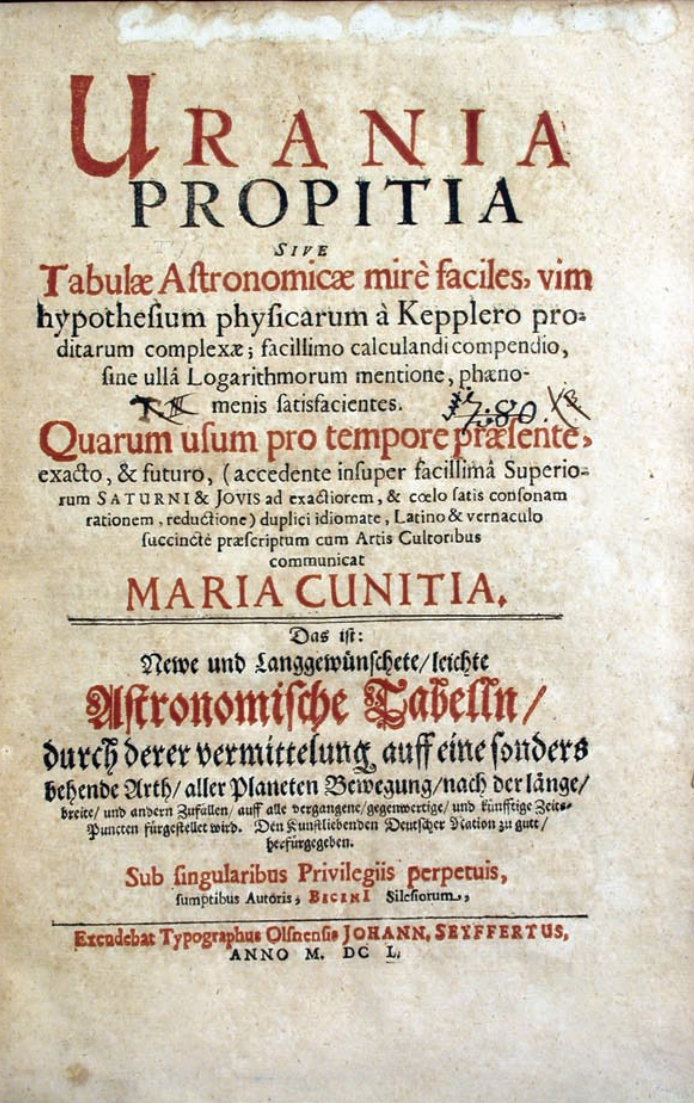 URANIA
PROPITIA
SIVE
Tabulæ Aſtronomicæ mirè faciles, vim
hypotheſium phyſicarum à Kepplero pro-
ditarum complexæ; facillimo calculandi compendio,
ſine ullâ Logarithmorum mentione, phæno-
menis ſatisfacientes.
Quarum uſum pro tempore præſente,
exacto, & futuro, (accedente inſuper facillimâ Superio-
rum SATURNI & JOVIS ad exactiorem, & cœlo ſatis conſonam
rationem, reductione) duplici idiomate, Latino & vernaculo
ſuccinctè præſcriptum cum Artis Cultoribus
communicat
MARIA CUNITIA.
Das iſt:
Newe und Langgewünſchete/ leichte
Aſtronomiſche Tabelln/
durch derer vermittelung auff eine ſonders
behende Arth/ aller Planeten Bewegung/ nach der länge/
breite/ und andern Zufällen/ auff alle vergangene/ gegenwertige/ und künfftige Zeits-
Puncten fürgeſtellet wird. Den Kunſtliebenden Deutſcher Nation zu gutt/
herfürgegeben.
Sub ſingularibus Privilegiis perpetuis,
ſumptibus Autoris, BICINI Sileſiorum,
Excudebat Typographus Olſnenſis JOHANN. SEYFFERTUS,
ANNO M. DC L.